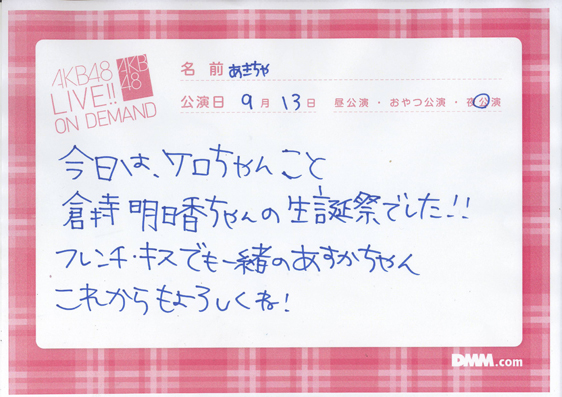 AKB48
LIVE!!
ON DEMAND
AKB
48
名 前 あきちゃ
公演日 9月 13日 昼公演・おやつ公演・夜公演
今日は、ケロちゃんこと
倉持明日香ちゃんの生誕祭でした!!
フレンチ・キスでも一緒のあすかちゃん
これからもよろしくね!
DMM.com